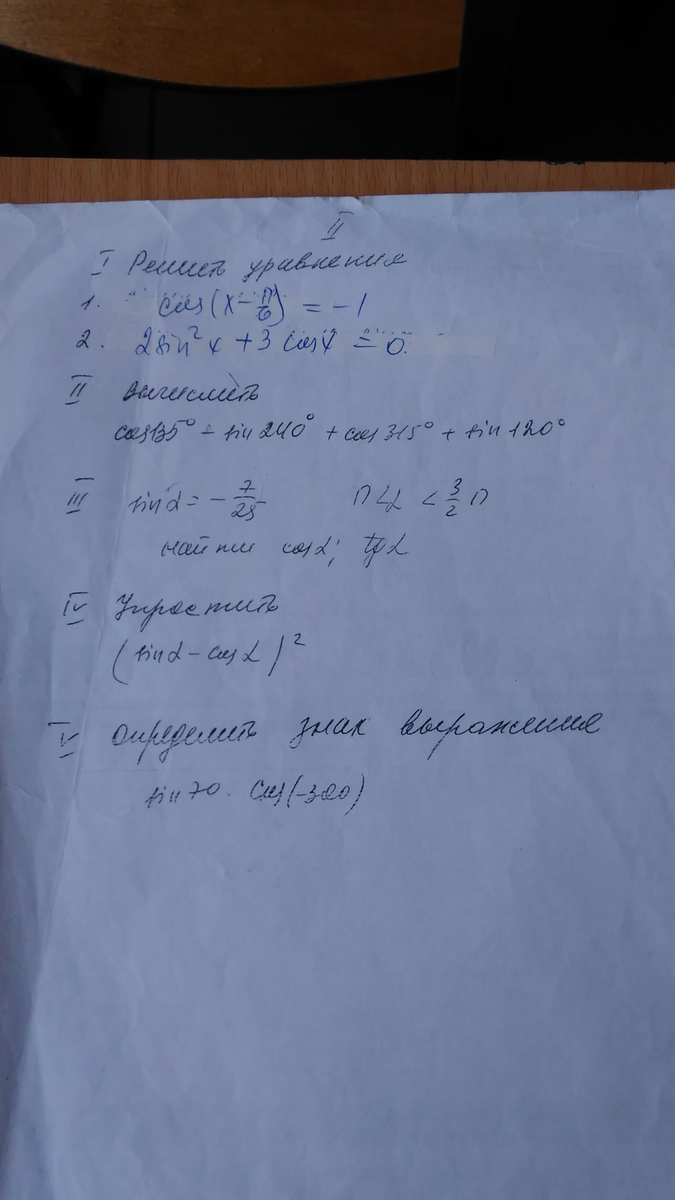 II
I Решить уравнения
1. cos(x - π/6) = -1
2. 2sin²x + 3 cosx = 0.
II Вычислить
cos135° - sin240° + cos315° + sin120°
III sinα = - 7/25 π<α < 3/2 π
найти cosα; tgα
IV Упростить
(sinα - cosα)²
V Определить знак выражения
sin70 · cos(-320)